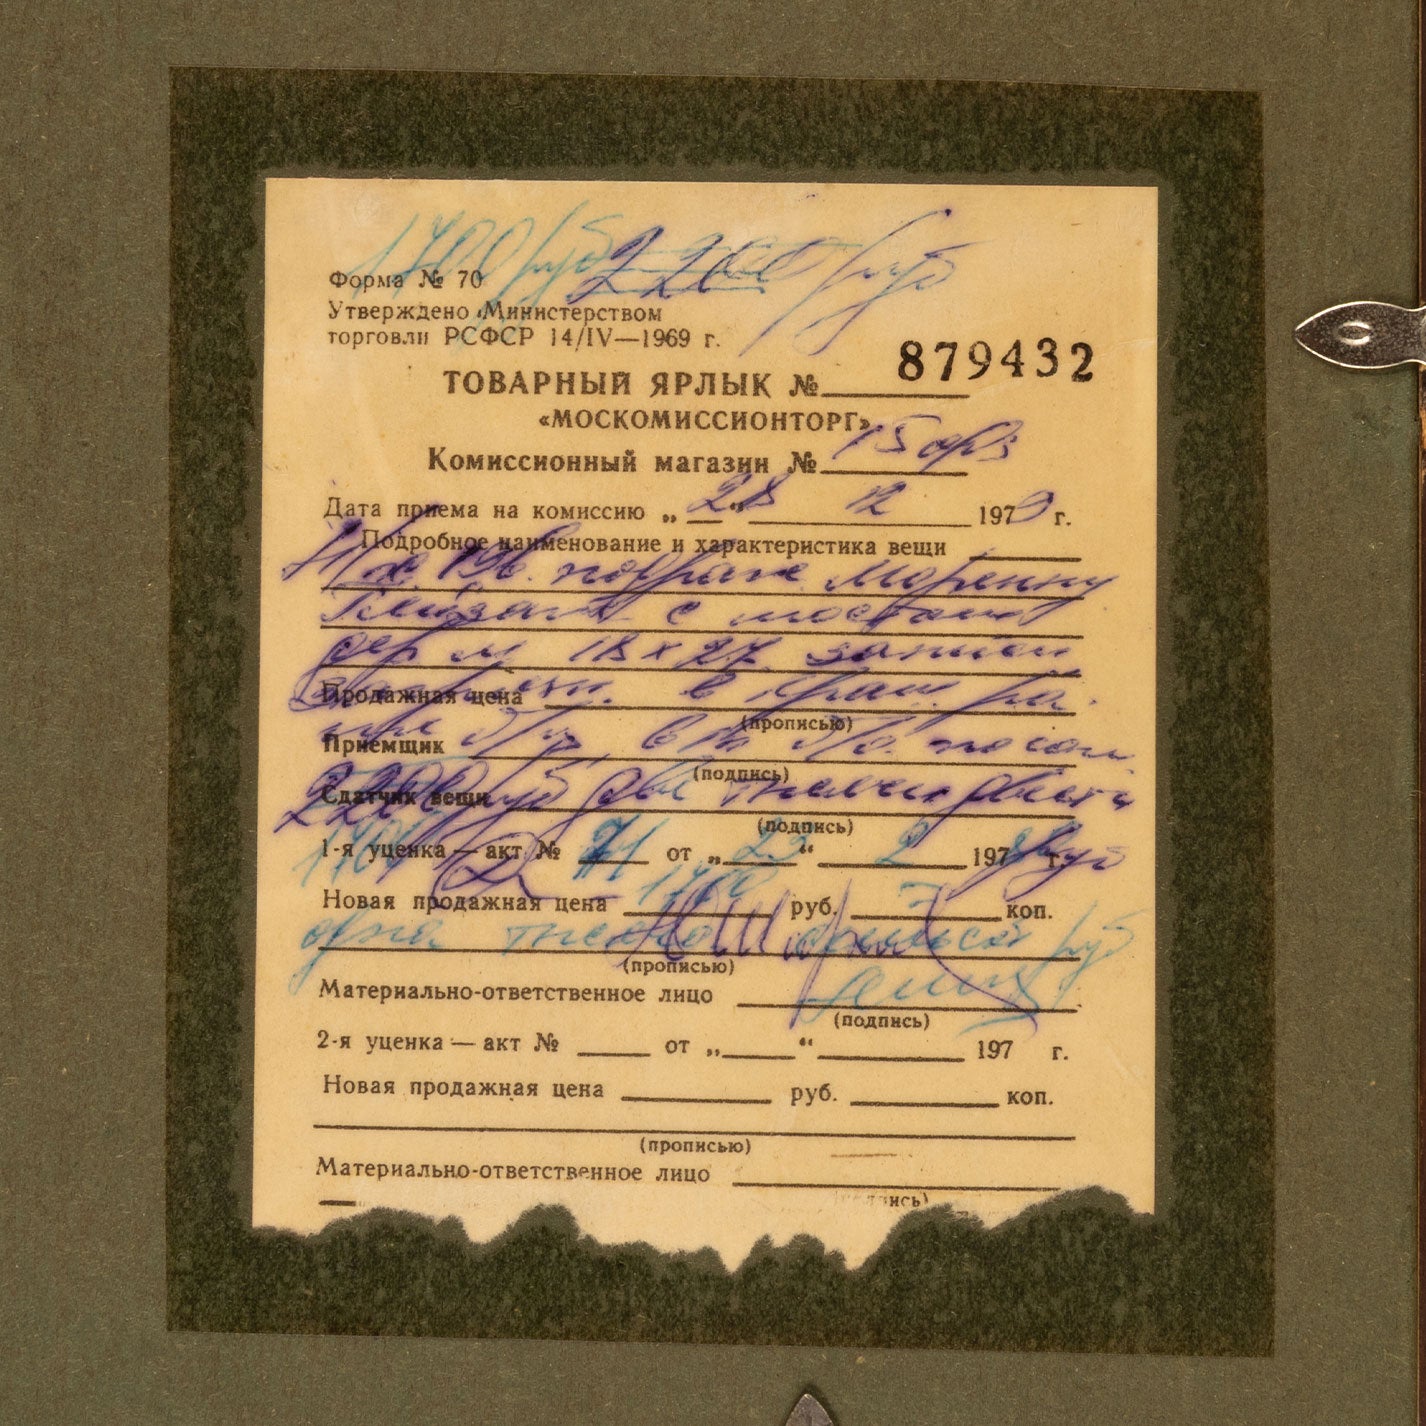 1700 руб 2200 руб
Форма № 70
Утверждено Министерством
торговли РСФСР 14/IV—1969 г.
879432
ТОВАРНЫЙ ЯРЛЫК №
«МОСКОМИССИОНТОРГ»
Комиссионный магазин № 15
Дата приема на комиссию „28“ 12 1979 г.
Подробное наименование и характеристика вещи
19 в. подраж.
Пейзаж с мостом
дер м 18 x 27
Продажная цена в
(прописью)
Приемщик
(подпись)
2200 руб две тысячи двести
Сдатчик вещи
(подпись)
1700
1-я уценка — акт № 71 от „23“ 2 197 г. руб
Новая продажная цена 1700 руб. — коп.
одна тысяча семьсот руб
(прописью)
Материально-ответственное лицо
(подпись)
2-я уценка — акт № от „ “ 197 г.
Новая продажная цена руб. коп.
(прописью)
Материально-ответственное лицо
(подпись)